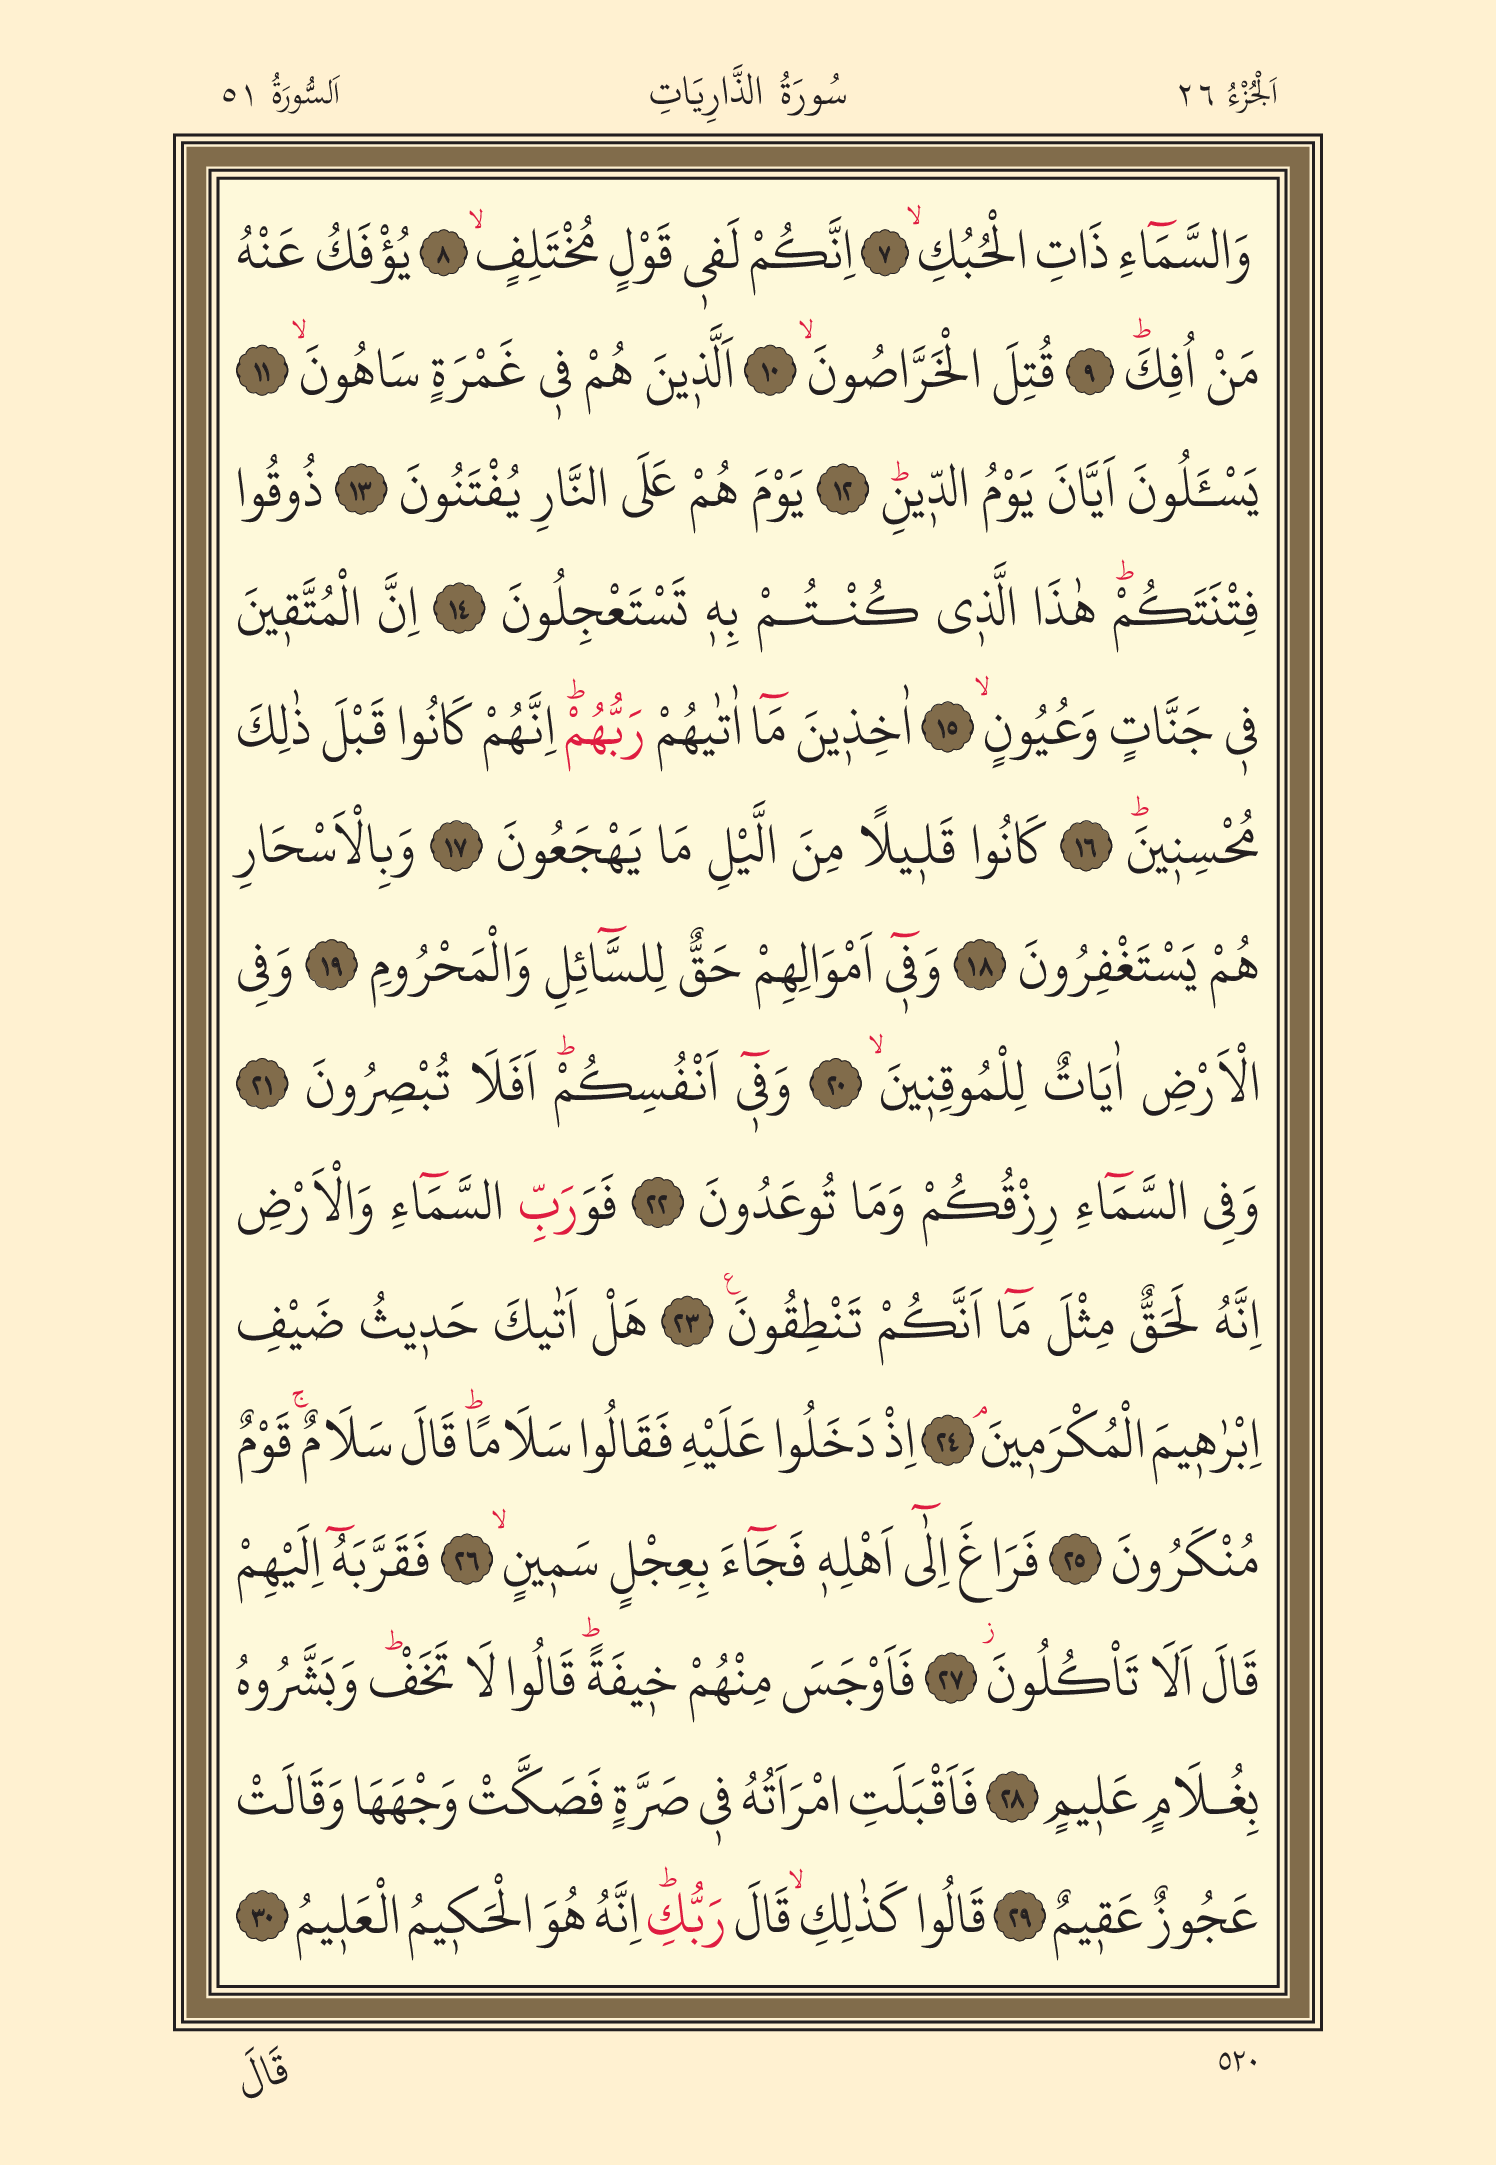 اَلْجُزْءُ ٢٦ سُورَةُ الذَّارِيَاتِ اَلسُّورَةُ ٥١
وَالسَّمَٓاءِ ذَاتِ الْحُبُكِۙ ٧ اِنَّكُمْ لَف۪ي قَوْلٍ مُخْتَلِفٍۙ ٨ يُؤْفَكُ عَنْهُ
مَنْ اُفِكَۜ ٩ قُتِلَ الْخَرَّاصُونَۙ ١٠ اَلَّذ۪ينَ هُمْ ف۪ي غَمْرَةٍ سَاهُونَۙ ١١
يَسْـَٔلُونَ اَيَّانَ يَوْمُ الدّ۪ينِۜ ١٢ يَوْمَ هُمْ عَلَى النَّارِ يُفْتَنُونَ ١٣ ذُوقُوا
فِتْنَتَكُمْۜ هٰذَا الَّذ۪ي كُنْتُمْ بِه۪ تَسْتَعْجِلُونَ ١٤ اِنَّ الْمُتَّق۪ينَ
ف۪ي جَنَّاتٍ وَعُيُونٍۙ ١٥ اٰخِذ۪ينَ مَٓا اٰتٰيهُمْ رَبُّهُمْۜ اِنَّهُمْ كَانُوا قَبْلَ ذٰلِكَ
مُحْسِن۪ينَۜ ١٦ كَانُوا قَل۪يلًا مِنَ الَّيْلِ مَا يَهْجَعُونَ ١٧ وَبِالْاَسْحَارِ
هُمْ يَسْتَغْفِرُونَ ١٨ وَف۪ٓي اَمْوَالِهِمْ حَقٌّ لِلسَّٓائِلِ وَالْمَحْرُومِ ١٩ وَفِي
الْاَرْضِ اٰيَاتٌ لِلْمُوقِن۪ينَۙ ٢٠ وَف۪ٓي اَنْفُسِكُمْۜ اَفَلَا تُبْصِرُونَ ٢١
وَفِي السَّمَٓاءِ رِزْقُكُمْ وَمَا تُوعَدُونَ ٢٢ فَوَرَبِّ السَّمَٓاءِ وَالْاَرْضِ
اِنَّهُ لَحَقٌّ مِثْلَ مَٓا اَنَّكُمْ تَنْطِقُونَ۟ ٢٣ هَلْ اَتٰيكَ حَد۪يثُ ضَيْفِ
اِبْرٰه۪يمَ الْمُكْرَم۪ينَۢ ٢٤ اِذْ دَخَلُوا عَلَيْهِ فَقَالُوا سَلَامًاۜ قَالَ سَلَامٌۚ قَوْمٌ
مُنْكَرُونَ ٢٥ فَرَاغَ اِلٰٓى اَهْلِه۪ فَجَٓاءَ بِعِجْلٍ سَم۪ينٍۙ ٢٦ فَقَرَّبَهُٓ اِلَيْهِمْ
قَالَ اَلَا تَأْكُلُونَۘ ٢٧ فَاَوْجَسَ مِنْهُمْ خ۪يفَةًۜ قَالُوا لَا تَخَفْۜ وَبَشَّرُوهُ
بِغُلَامٍ عَل۪يمٍ ٢٨ فَاَقْبَلَتِ امْرَاَتُهُ ف۪ي صَرَّةٍ فَصَكَّتْ وَجْهَهَا وَقَالَتْ
عَجُوزٌ عَق۪يمٌ ٢٩ قَالُوا كَذٰلِكِۙ قَالَ رَبُّكِۜ اِنَّهُ هُوَ الْحَك۪يمُ الْعَل۪يمُ ٣٠
٥٢٠ قَالَ